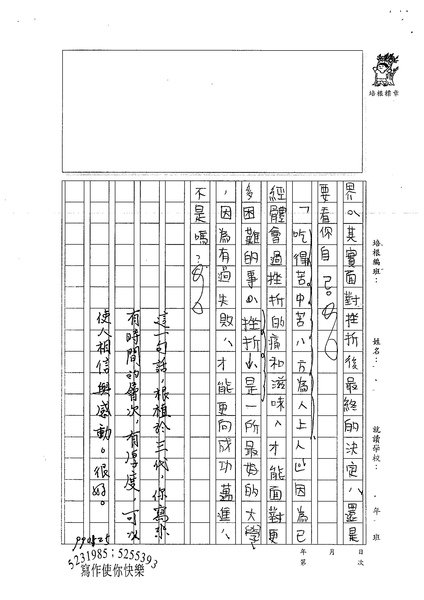 培根楷章
培根編班：
姓名：
就讀學校：
年 班
月 日
年 第 次
界，其實面對挫折後最終的決定，還是
要看你自己。
「吃得苦中苦，方為人上人」因為已
經體會過挫折的痛和滋味，才能面對更
多困難的事，挫折，是一所最好的大學
，因為有過失敗，才能更向成功邁進，
不是嗎？
這一句話，根植於三代，你寫來
有時間的層次，有厚度，可以
使人相信與感動。很好。
990525
5231985；5255393
寫作使你快樂